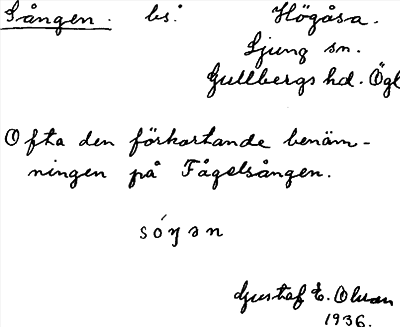 Sången. bs. Högåsa.
Ljung sn.
Gullbergs hd. Ögl
Ofta den förkortande benäm-
ningen på Fågelsången.
sóŋən
Gustaf E. Olsson
1936.